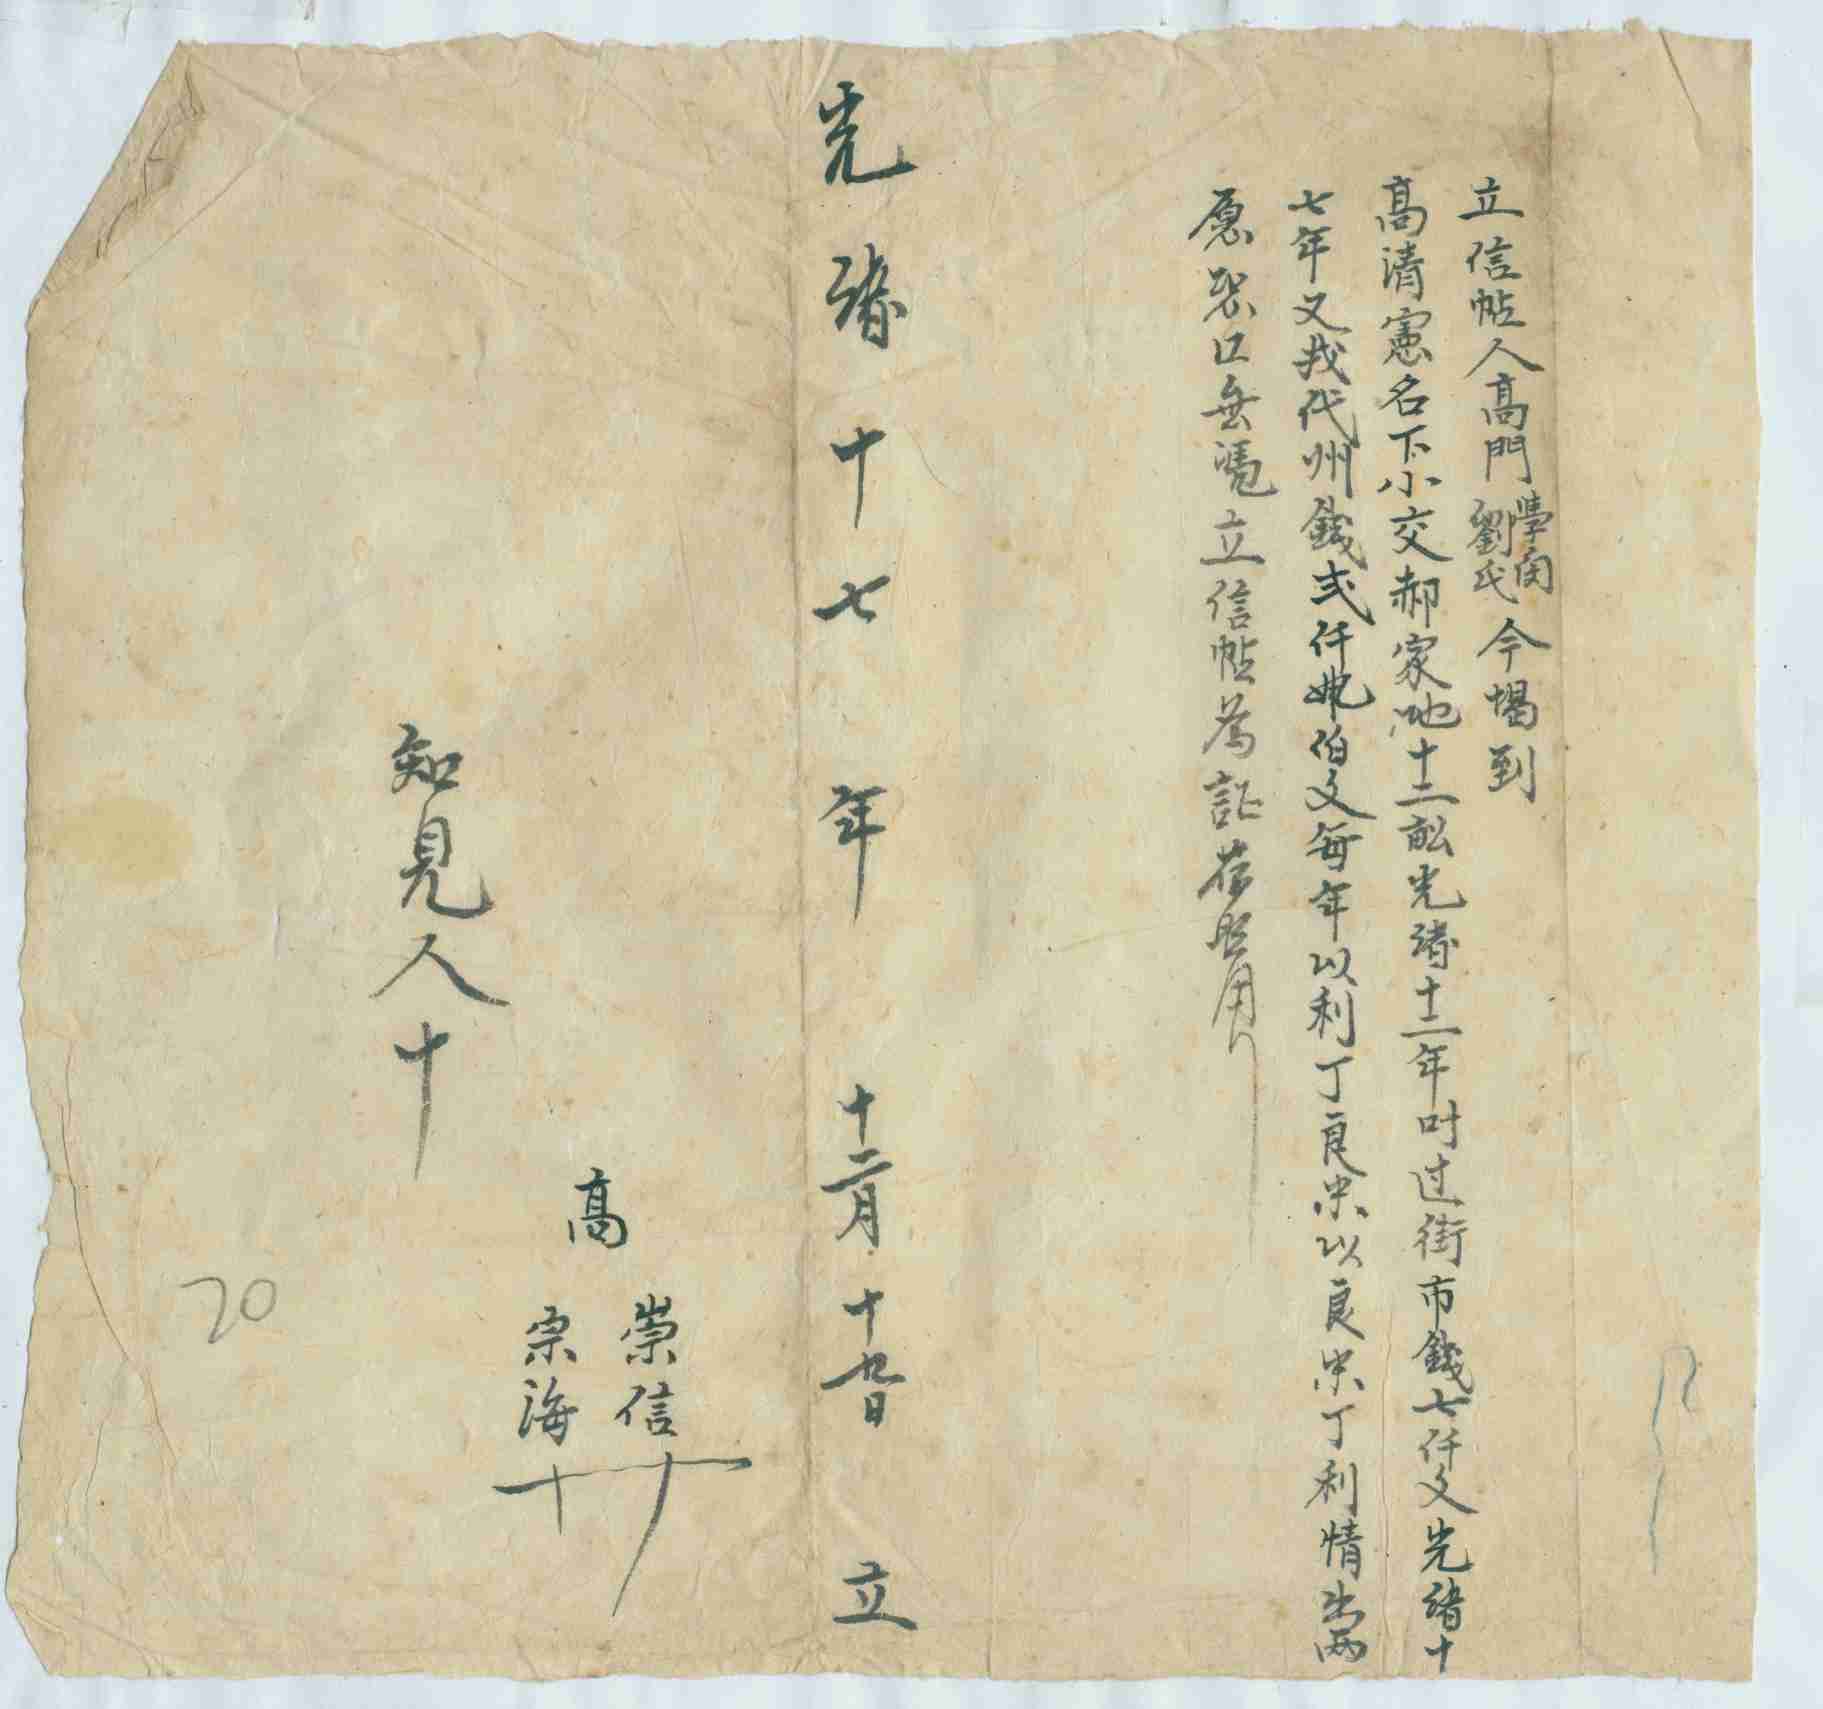 立信帖人高門學问劉氏今揭到
高清憲名下小交郝家地十二畝光緒十二年吋过街市錢七仟文光緒十
七年又找代州錢弍仟伯文每年以利丁良米以良米丁利情出兩
愿恐口無憑立信帖為証存照用
光緒十七年十二月十九日立
高崇信十
宗海十
知見人十
20